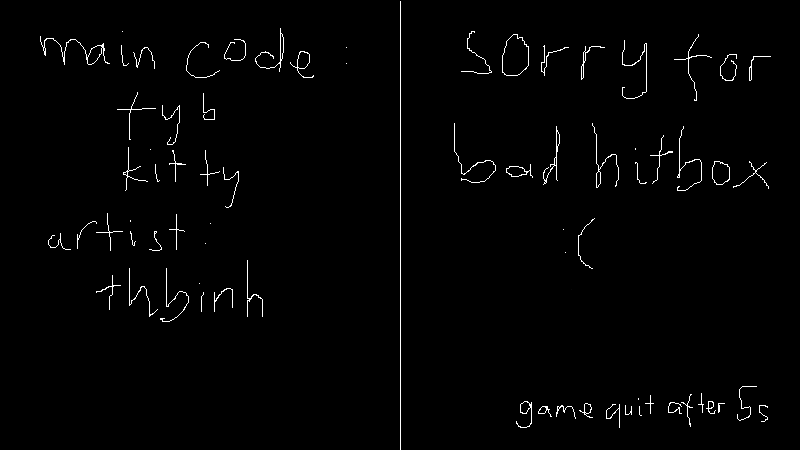 main code :
tyb
kitty
artist :
thbinh
sorry for
bad hitbox
:(
game quit after 5s